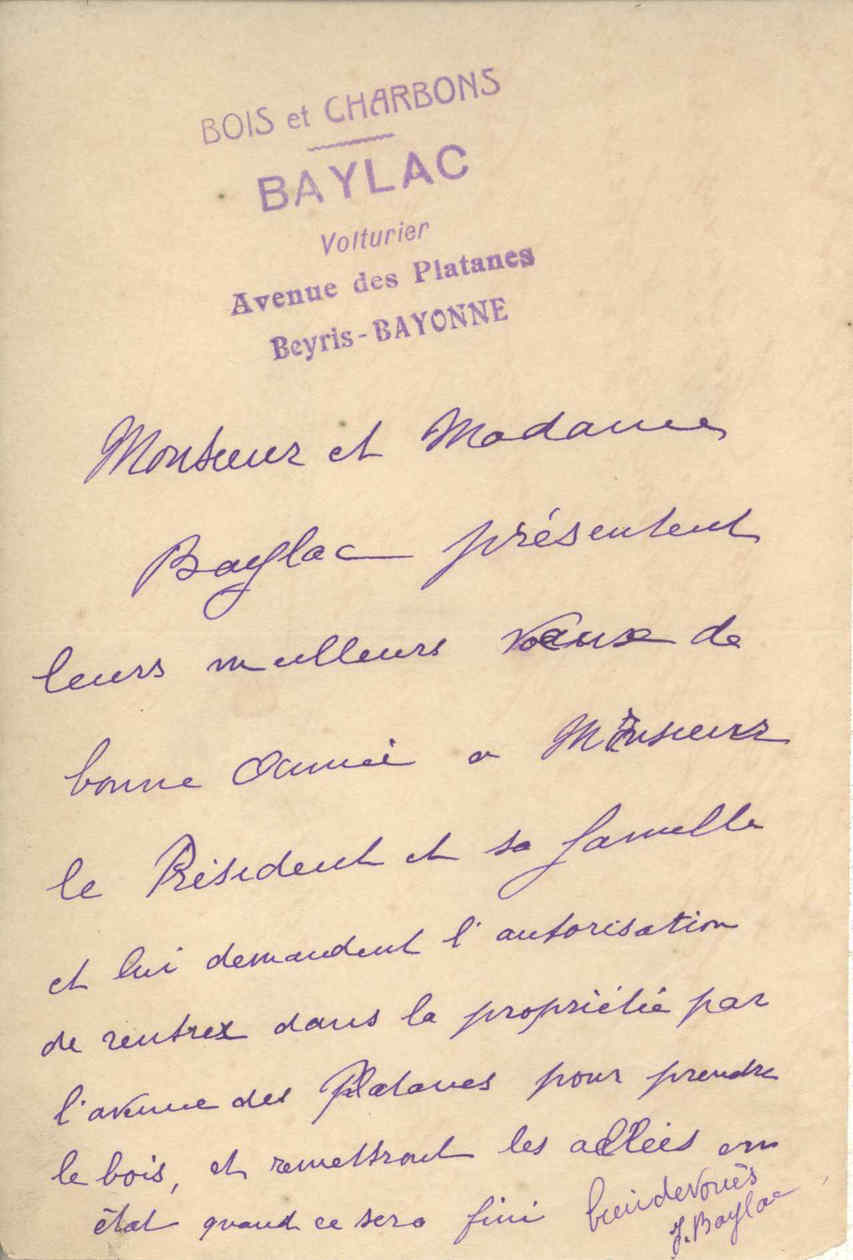 BOIS et CHARBONS
BAYLAC
Voiturier
Avenue des Platanes
Beyris-BAYONNE
Monsieur et Madame
Baylac présentent
leurs meilleurs vœux de
bonne année a Monsieur
le Président et sa famille
et lui demandent l'autorisation
de rentrer dans la propriétée par
l'avenue des Platanes pour prendre
le bois, et remettront les allées en
état quand ce sera fini bien dévoués
J. Baylac